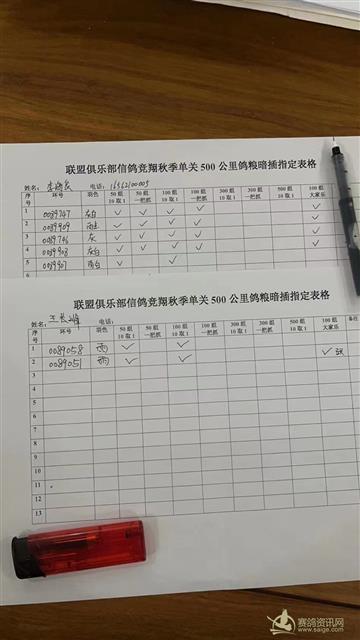 联盟俱乐部信鸽竞翔秋季单关500公里鸽粮暗插指定表格
姓名： 电话：
序号 环号 羽色 50组10取1 50组一把抓 100组10取1 100组一把抓 300组10取1 300组一把抓 500组10取1 100组大家乐
1 0089747 灰白 ✓ ✓ ✓ ✓ ✓
2 0089909 ✓ ✓ ✓ ✓ ✓
3 0089746 灰 ✓ ✓ ✓ ✓ ✓
4 0089908 灰白 ✓ ✓ ✓ ✓ ✓
5 0089907 雨白 ✓ ✓
6
联盟俱乐部信鸽竞翔秋季单关500公里鸽粮暗插指定表格
姓名： 电话：
序号 环号 羽色 50组10取1 50组一把抓 100组10取1 100组一把抓 300组10取1 300组一把抓 500组10取1 100组大家乐 备注
1 0089058 雨 ✓ ✓ ✓
2 008905 雨 ✓ ✓
3
4
5
6
7
8
9
10
11
12
13
赛鸽资讯网
www.saige.com